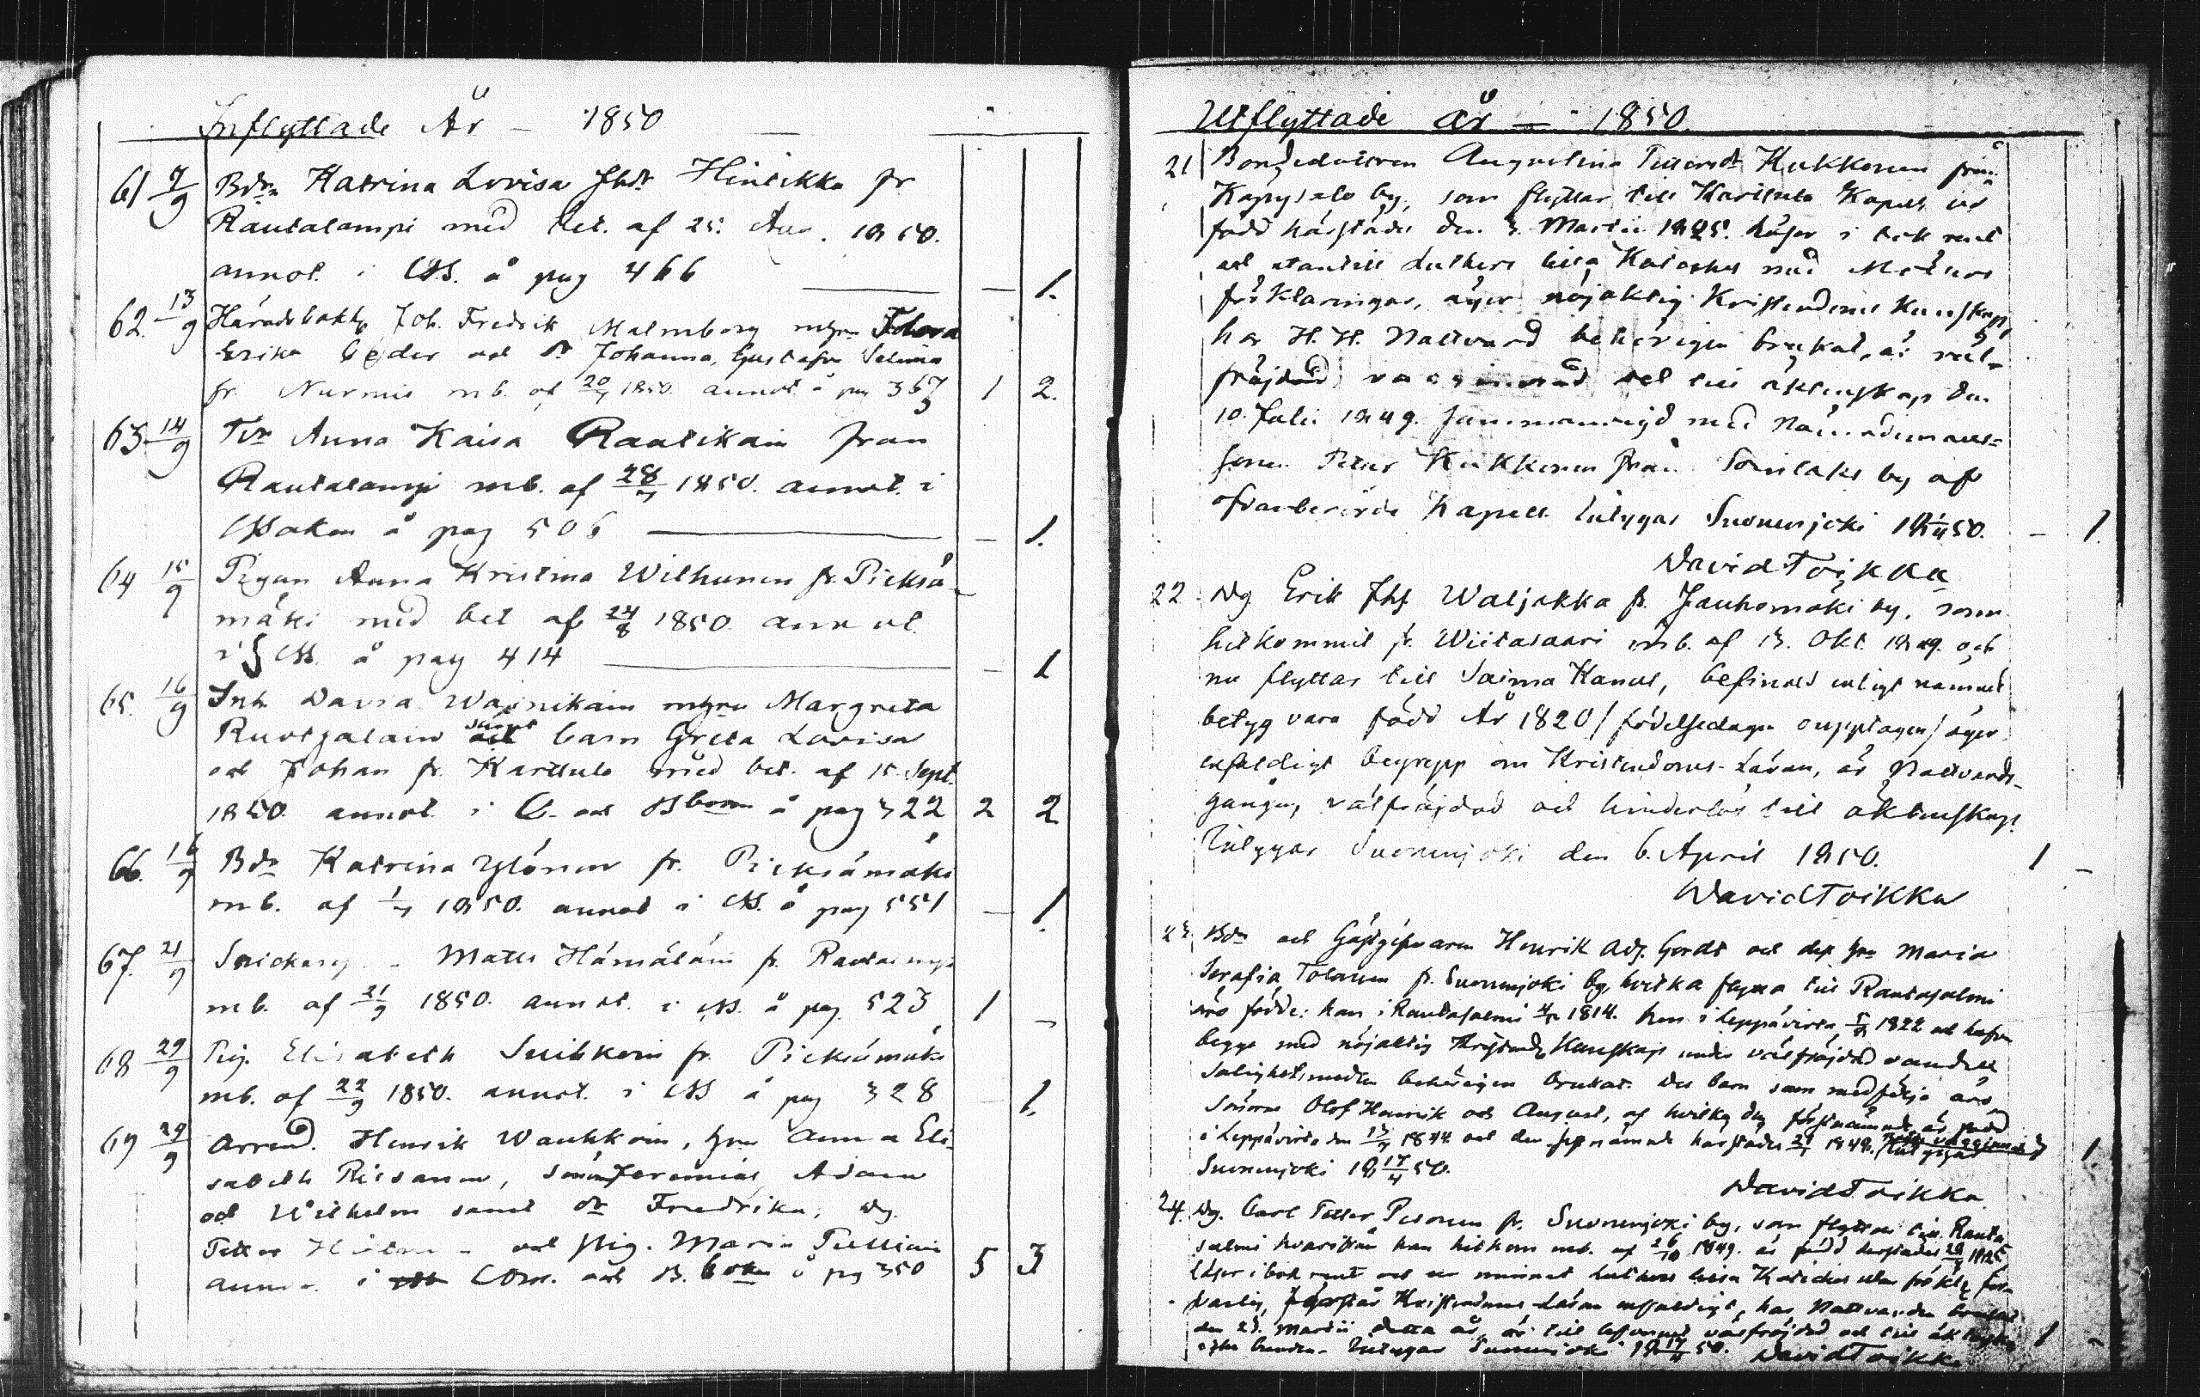 Inflyttade År – 1850
61 7/9 Bdr Katrina Lovisa Jhdr Hintikka fr
Rautalampi med bet. af 25. Aug. 1850.
annot. i CB. å pag 466 — 1.
62. 13/9 Häradsbokh Joh. Fredrik Malmborg
Erika Ceder och dr Johanna, Gustafva Selima
fr. Nurmis mb. af 20/7 1850 annot å pag 367 1 2.
63 14/9 Tdr Anna Kaisa Rautikain från
Rautalampi mb. af 28/7 1850. annot. i
CBoken å pag 506 — 1.
64 15/9 Pigan Anna Kristina Wilhunen fr. Pieksä-
mäki med bet af 24/8 1850. annot.
i CB. å pag 414 — 1
65. 16/9 Inh David Wainikain Margreta
samt barn Greta Lovisa
och Johan fr. Karttula med bet. af 15. Sept.
1850. annot. i och å pag 322 2 2
66. 16/9 Bdr Katrina Ylönen fr. Pieksämäki
mb. af 1/7 1850. annot i CB. å pag 551 — 1.
67. 21/9 Matts Hämäläin fr. Rautalampi
mb. af 21/9 1850. annot. i CB. å pag. 523 1 —
68 29/9 Pig. Elisabeth fr. Pieksämäki
mb. af 22/9 1850. annot. i CB å pag 328 — 1.
69 29/9 Arrend. Henrik Wauhkoin, hru Anna Eli-
sabeth Riisanen, Söner Jeremias, Adam
och Wilhelm samt dr Fredrika, Dg.
Petter och pig. Maria
i och å pg 350 5 3
Utflyttade år – 1850.
21 Bondedottren Augustina Pettersdr Kukkonen från
Kärpysalo by, som flyttar till Karttula Kapell är
född härstädes den 3. Martii 1825. läser i bok rent
och utantill Luthers lilla Kateches med
förklaringar, äger nöjaktig Kristendoms Kunskap,
har H. H. Nattvard behörigen brukat, är väl-
fräjdad, vaccinerad och till äktenskap den
10. Juli 1849. sammanvigd med Nämndemans-
sonen Petter Kukkonen från Soinlaks by af
ofvanberörde Kapell. Intygar Suonenjoki 18 1/4 50. — 1
David Toikka
22 Dg Erik Jhs Waljakka fr. Jauhomäki by, som
hitkommit fr. Wiitasaari mb. af 13. Okt. 1849. och
nu flyttar till Saima Kanal, befinnes enligt nämnt
betyg vara född År 1820 / födelsedagen oupptagen / äger
enfaldigt begrepp om Kristendoms-Läran, är Nattvards-
gången, välfräjdad och hinderlös till äktenskap.
Intygar Suonenjoki den 6. April 1850. 1 —
David Toikka
23 Bdn och Gästgifvaren Henrik Adf. Gordt och dess hru Maria
Serafia Tolanen fr. Suonenjoki by, hvilka flytta till Rantasalmi
äro födde: han i Rantasalmi 1814. hon i Leppävirta 1822 och hafva
begge med nöjaktig Kristends Kunskap under välfräjdad vandel
salighetsmedlen behörigen brukat. De barn som medfölja äro
Sönerne Olof Henrik och August, af hvilka den förstnämnde är född
i Leppävirta den 13/7 1844 och den sistnämnde härstädes 1848.
Suonenjoki 18 17/4 50. 1
David Toikka
24. Dg. Carl Petter Pesonen fr. Suonenjoki by, som flyttar till Ranta-
salmi hvarifrån han hitkom mb. af 26/10 1849. är född härstädes
läser i bok rent och ur minnet Luthers lilla Kateches
förstår Kristendoms Läran enfaldigt, har Nattvarden brukat
den 25. Martii detta år, är till välfräjdad och till äktenskap
Intygar Suonenjoki 18 17/4 50. 1 —
David Toikka